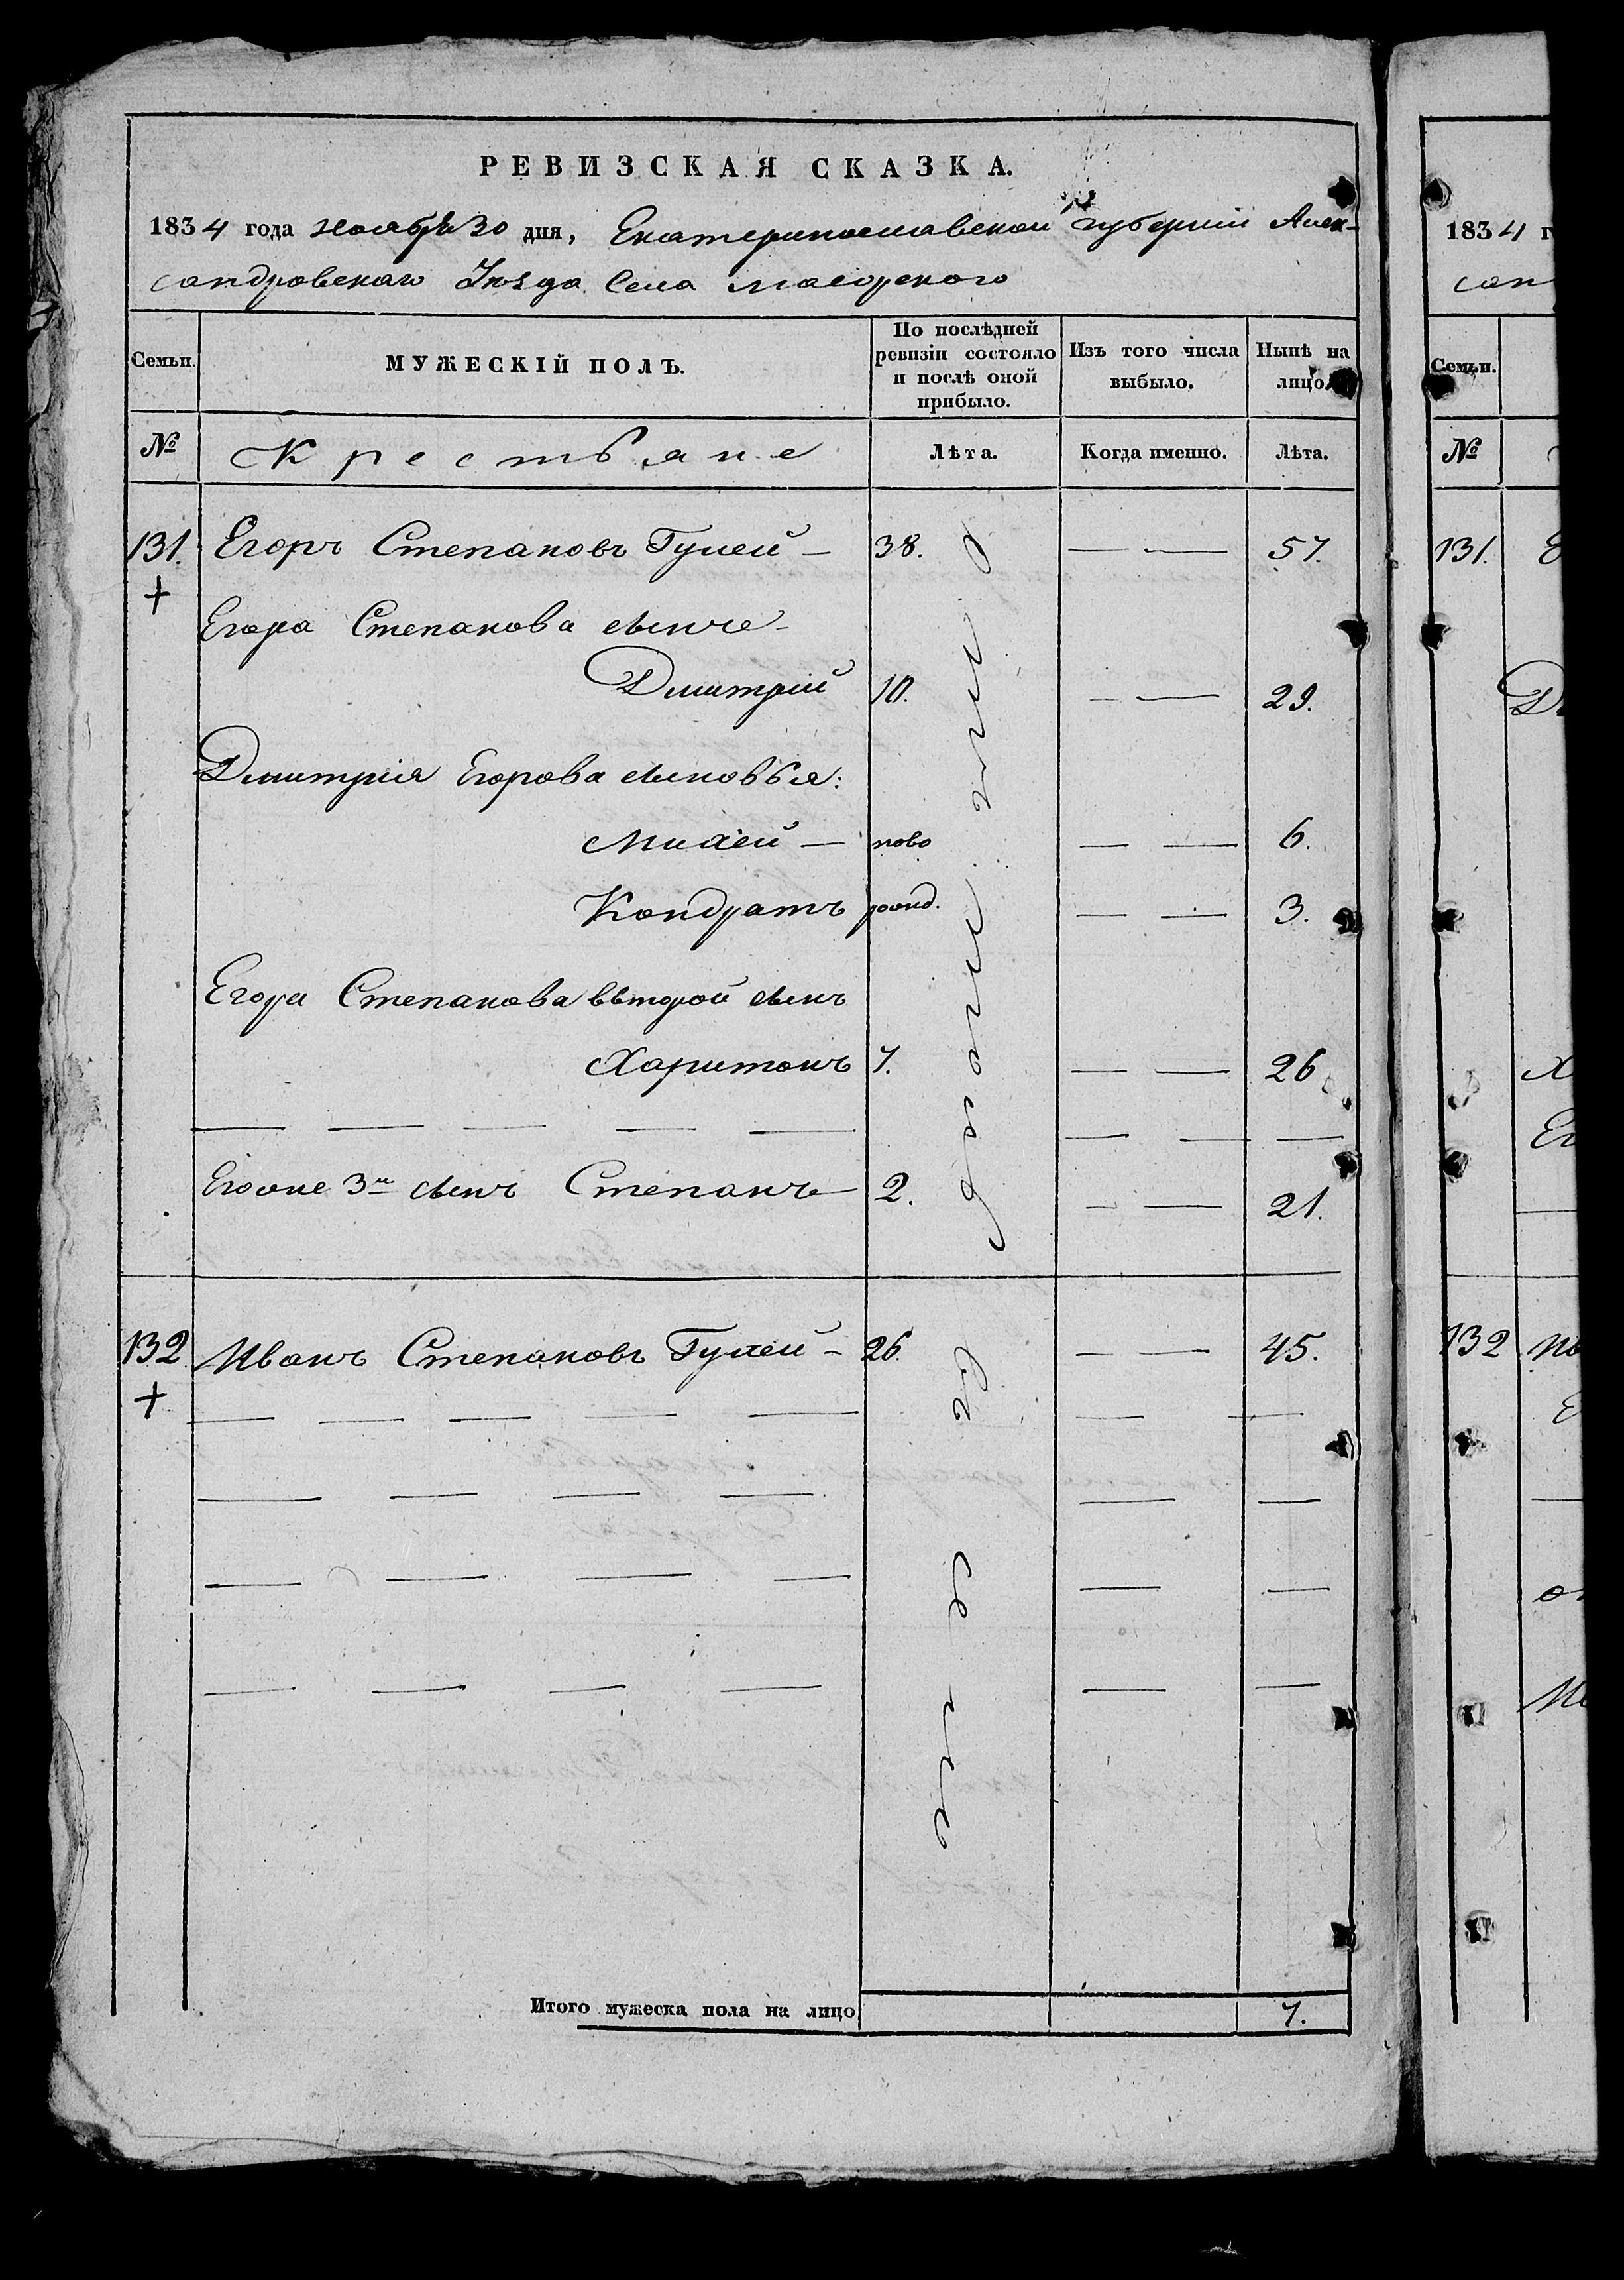 РЕВИЗСКАЯ СКАЗКА.
1834 года ноября 30 дня, Екатеринославской губернии Алек-
сандровскаго Уезда Села Маіорского
Семьи. МУЖЕСКІЙ ПОЛЪ. По послѣдней ревизіи состояло и послѣ оной прибыло. Изъ того числа выбыло. Нынѣ на лицо.
№ Крестьяне Лѣта. Когда именно. Лѣта.
131. Егоръ Степановъ Гулей — 38. — — 57.
Егора Степанова сынъ
Дмитрий 10. — — 29.
Дмитрия Егорова сыновья:
Михей — ново — — 6.
Кондратъ рожд. — — 3.
Егора Степанова вторoй сынъ
Харитонъ 7. — — 26
Егоже 3й сынъ Степанъ 2. — — 21.
132 Иванъ Степановъ Гулей — 26. — — 45.
Итого мужеска пола на лицо 7.
1834 г
сан
Семьи.
№
131. Е
Х
Ег
132 Ив